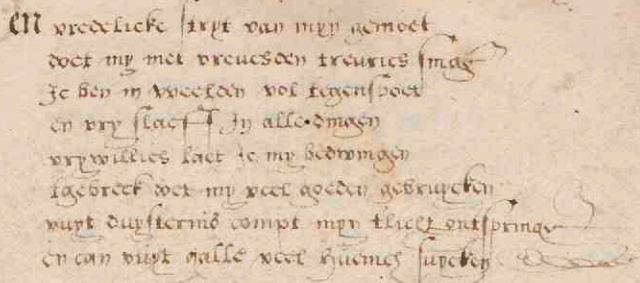 En vredelicke stryt van myn gemoet
doet my met vreucsden treuries smaq
Ic ben in weelden vol tegenspoet
en vry slaeft In alle dingen
vrywillics laet ic my bedwingen
tgebreck doet my veel goeden gebruycken
vuyt duysternis compt myn tlicht ontspringe
en can vuyt galle veel huenich suycken